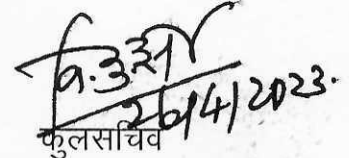 26/4/2023.
कुलसचिव